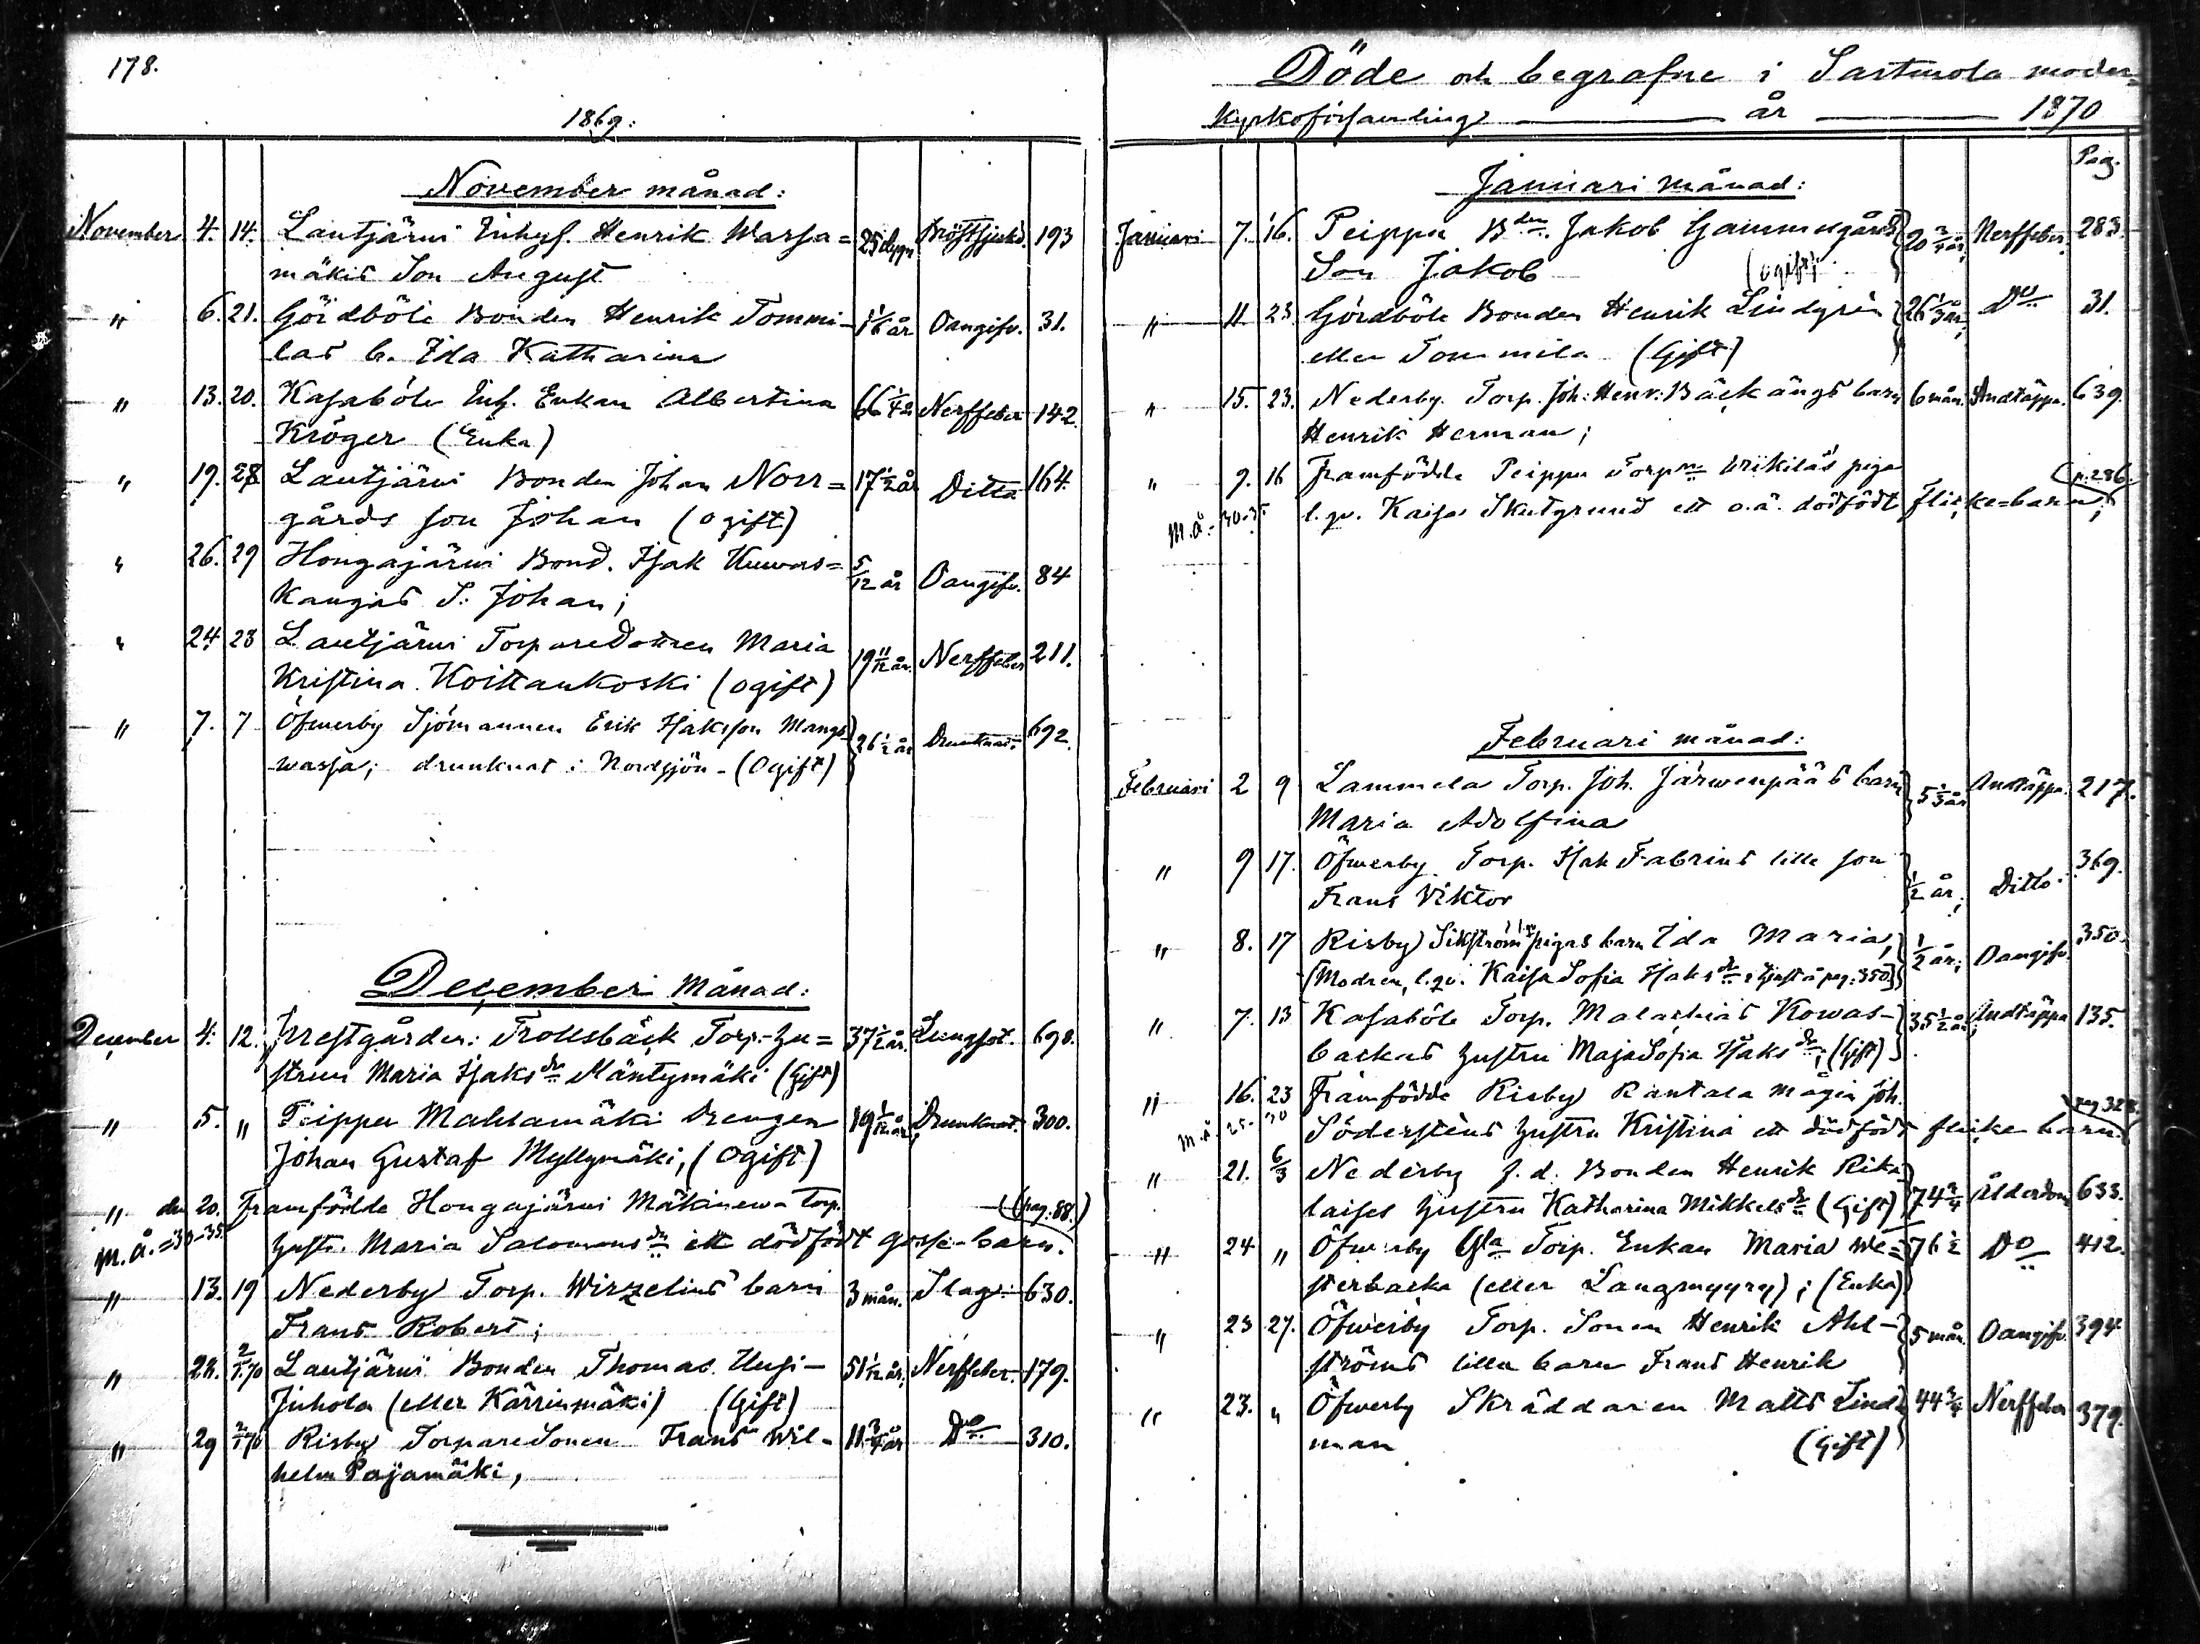 178.
1869:
November månad:
November 4. 14. Lautjärvi Inhys. Henrik Warsa= 25 dygn Bröstsjukd. 193
mäkis Son August
" 6. 21. Gördböle Bonden Henrik Tommi- 1 1/6 år Oangifv. 31.
las b. Ida Katharina
" 13. 20. Kasaböle Inh. Enkan Albertina 66 1/12 Nerffeber 142
Kröger (Enka)
" 19. 28 Lautjärvi Bonden Johan Norr= 17 1/2 år Ditto 164.
gårds son Johan (ogift)
" 26. 29 Hongajärvi Bond. Isak Kuwas= 5/12 år Oangifv. 84
kangas S: Johan;
" 24 28 Lautjärvi Torparedottren Maria 19 11/12 år Nerffeber 211.
Kristina Koittankoski (ogift)
" 7. 7 Öfwerby Sjömannen Erik Isaksson Mangs- 26 1/2 år Drunknat 692.
wasja; drunknat i Nordsjön - (Ogift)
December Månad:
December 4. 12. Prestgården: Trollsbäck Torp.-hu= 37 1/2 år Lungsot. 698.
strun Maria Isaksdr Mäntymäki (Gift)
" 5. " Peippu Mahlamäki Drengen 19 1/12 år Drunknat. 300.
Johan Gustaf Myllymäki, (Ogift)
" den 20. Framfödde Hongajärvi Mäkinewa Torp. (pag: 88.)
M. å. = 30-35 hustr. Maria Salomonsdr ett dödfödt gosse-barn.
" 13. 19 Nederby Torp. Wirzelius' barn 3 mån. Slag 630.
Frans Robert;
" 28. 2/1.70 Lautjärvi Bonden Thomas Uusi- 51 1/12 år, Nerffeber 179.
Juhola (eller Kärrinmäki) (Gift)
" 29 2/1 70 Risby Torparesonen Frans Wil- 11 3/4 år Do 310.
helm Pajamäki,
Döde och begrafne i Sastmola moder=
kyrkoförsamling år 1870
Pag.
Januari månad:
Januari 7. 16. Peippu Bden Jakob Gammelgårds 20 3/4 år, Nerffeber. 283.
Son Jakob (ogift);
" 11. 23 Gördböle Bonden Henrik Lindgren 26 1/3 år, Do 31.
eller Tommila (Gift)
" 15. 23. Nederby Torp. Joh: Henr: Bäckängs barn 6 mån. Andtäppa. 639.
Henrik Herman;
" 9. 16 Framfödde Peippu Torpn Wikilä's piga (p. 286.
M. å: 30-35 l. qv. Kaisa Skutgrund ett o.ä. dödfödt flickebarn;
Februari månad:
Februari 2 9 Lammela Torp. Joh. Järwenpääs barn 5 1/3 år Andtäppa. 217.
Maria Adolfina
" 9 17. Öfwerby Torp. Isak Fabrins lille son 1/2 år; Ditto. 369.
Frans Viktor
" 8. 17 Risby Sikström pigas barn Ida Maria, 1/2 år; Oangifv. 350.
(Modren, l. qv. Kaisa Sofia Isaksdr, tjenst å pag: 350)
" 7. 13 Kasaböle Torp. Malachias Kowas- 35 1/2 år Andtäppa 135.
backas hustru Maja Sofia Isaksdr; (Gift)
" 16. 23 Framfödde Risby Rantala mågen Joh. pag 328
m. å 25-30 Söderstens hustru Kristina ett dödfödt flicke barn.
" 21. 6/3 Nederby f. d. Bonden Henrik Rika- 74 3/4 Ålderdom 633.
laises hustru Katharina Mikkelsdr (Gift)
" 24 " Öfwerby Gla Torp. Enkan Maria We= 76 1/2 Do 412.
sterbacka (eller Langmyyry); (Enka)
" 23 27. Öfwerby Torp. Sonen Henrik Ahl- 5 mån. Oangifv. 394
ströms lilla barn Frans Henrik
" 23. " Öfwerby Skräddaren Matts Lind- 44 3/4 Nerffeber 379.
man (Gift)